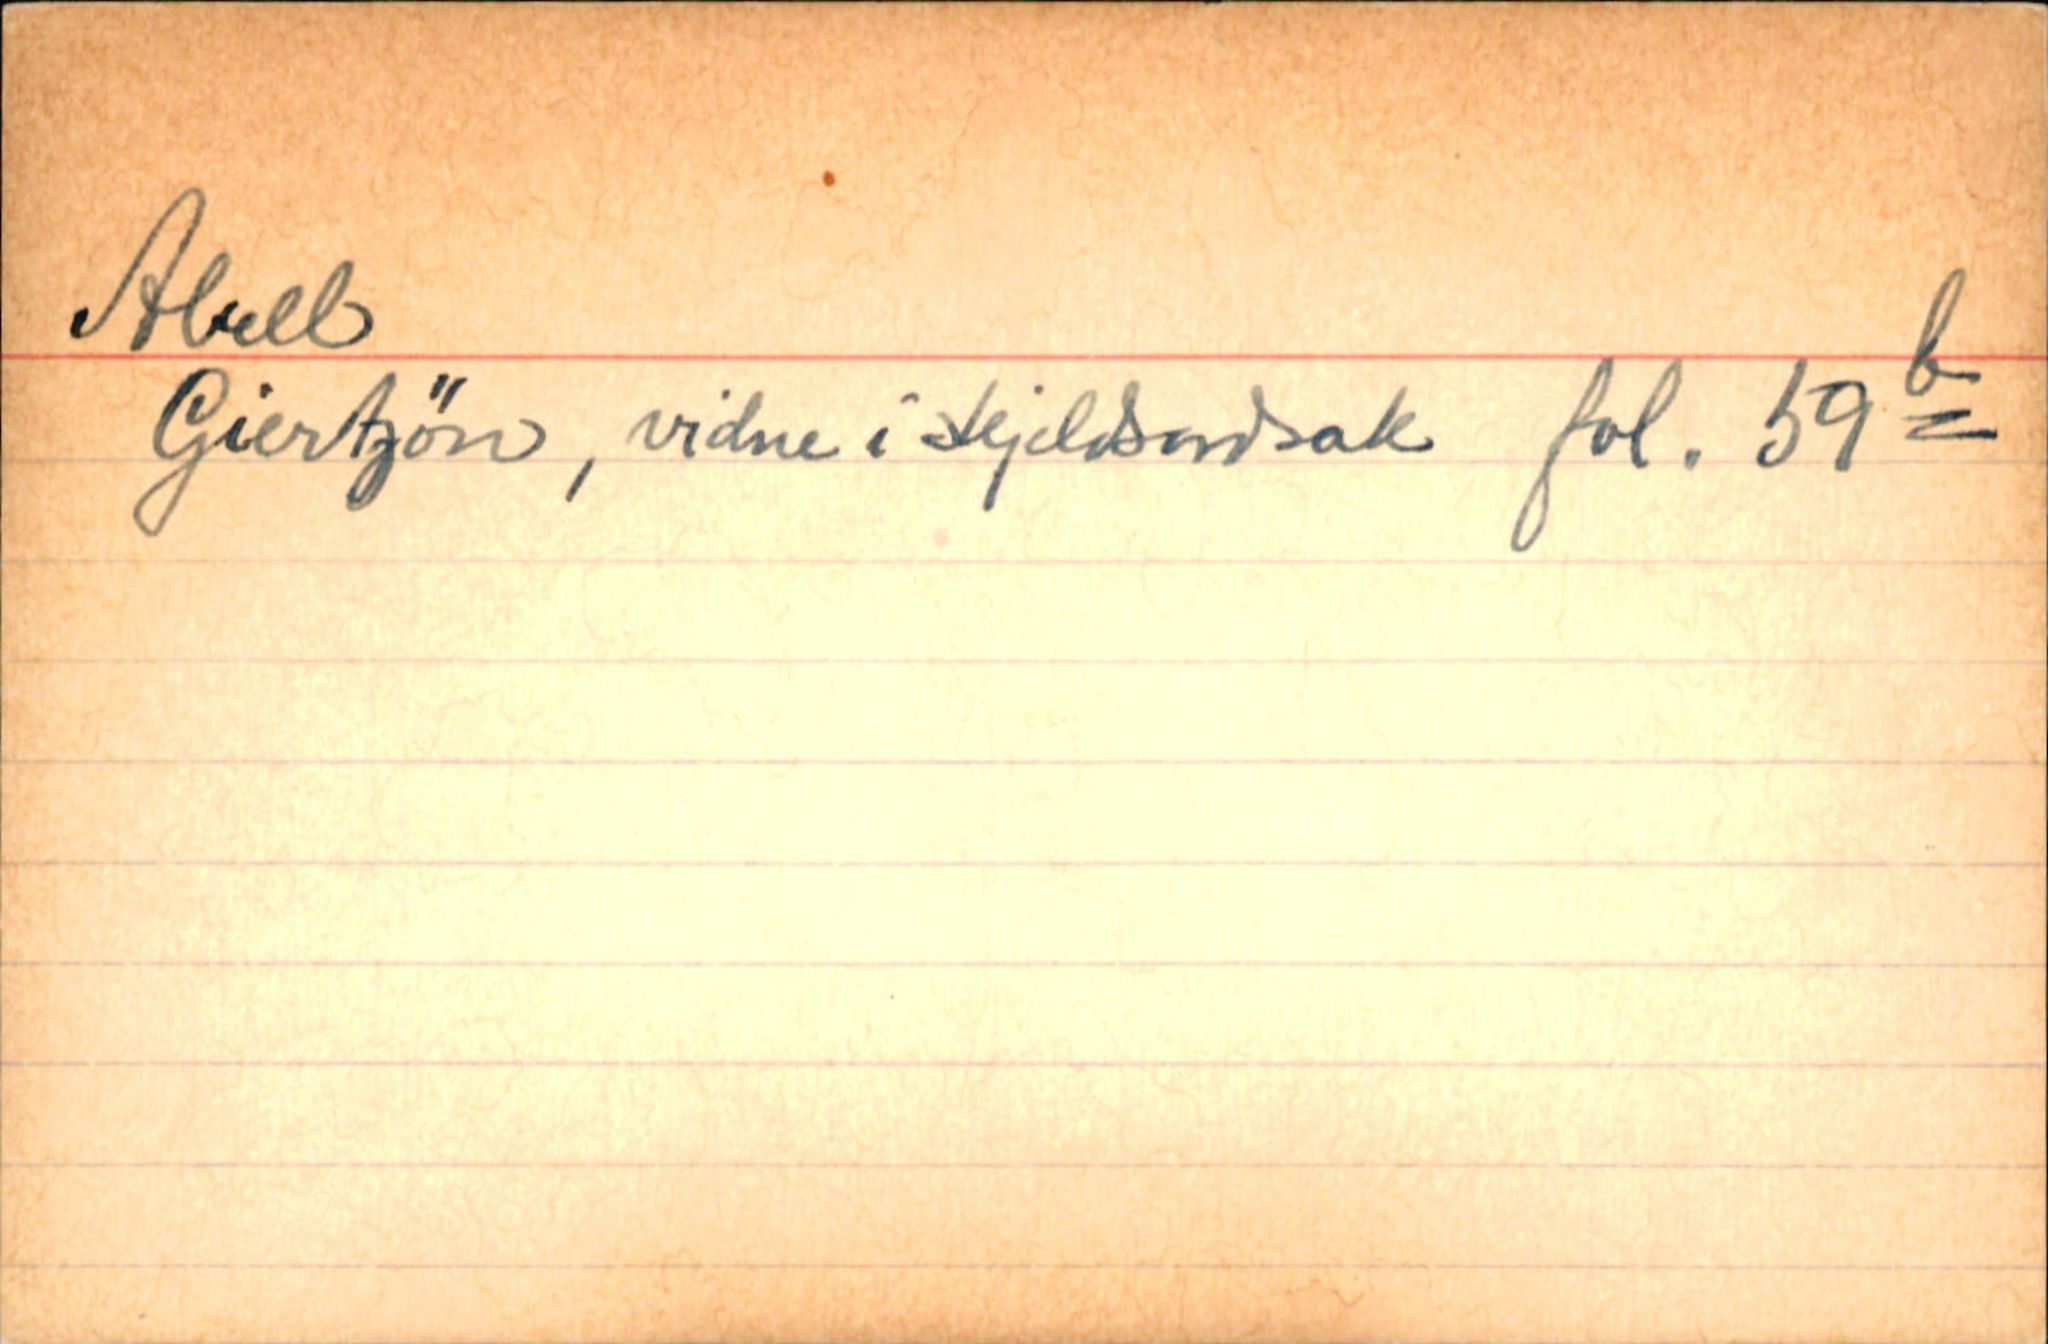 Abell
Giertzön, vidne i skjeldsordsak fol. 59 b